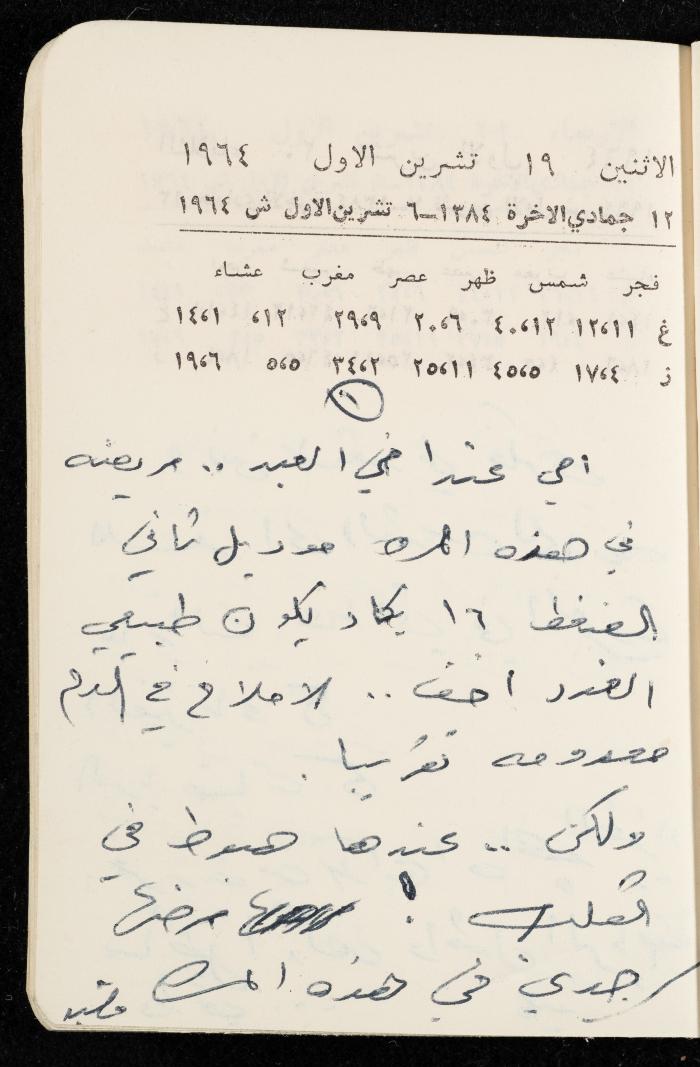 الاثنين ١٩ تشرين الاول ١٩٦٤
١٢ جمادي الاخرة ١٣٨٤ـ٦ تشرين الاول ش ١٩٦٤
فجر شمس ظهر عصر مغرب عشاء
غ ١٢،١١ ٤٠،١٢ ٢٠،٦ ٢٩،٩ ،١٢ ١٤،١
ز ١٧،٤ ٤٥،٥ ٢٥،١١ ٣٤،٢ ٥،٥ ١٩،٦
١
امي عندا في العبد .. مريضه
في هذه المره موديل ثاني
الضغط ١٦ يكاد يكون طبيعي
الغدد اخف .. الاملاح في الدم
معدومه تقريبا .
ولكن .. عندها هبوط في
القلب ! مرضها
جدي في هذه المره